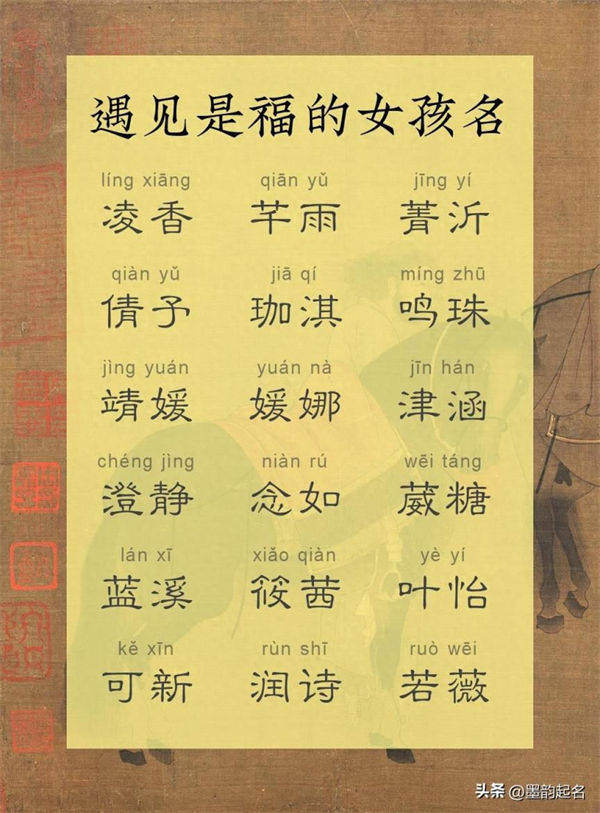 遇见是福的女孩名
líng xiāng qiān yǔ jīng yí
凌香 芊雨 菁沂
qiàn yǔ jiā qí míng zhū
倩予 珈淇 鸣珠
jìng yuán yuán nà jīn hán
靖媛 媛娜 津涵
chéng jìng niàn rú wēi táng
澄静 念如 葳糖
lán xī xiǎo qiàn yè yí
蓝溪 筱茜 叶怡
kě xīn rùn shī ruò wēi
可新 润诗 若薇
头条 @墨韵起名